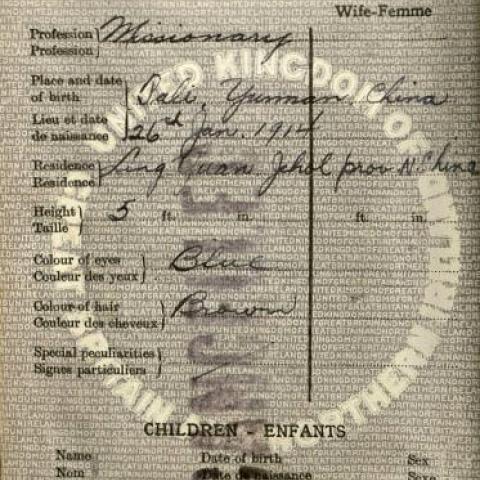 Wife-Femme
Profession } Missionary
Profession
Place and date of birth } Dali, Yunnan, China
Lieu et date de naissance } 26th Jan. 1914
Residence } Ling Yuan Jehol prov N. China
Residence
Height } 5 ft. in. ft. in.
Taille
Colour of eyes } Blue
Couleur des yeux
Colour of hair } Brown
Couleur des cheveux
Special peculiarities }
Signes particuliers
CHILDREN - ENFANTS
Name Date of birth Sex
Nom Date de naissance Sexe
UNITED KINGDOM OF GREAT BRITAIN AND NORTHERN IRELAND